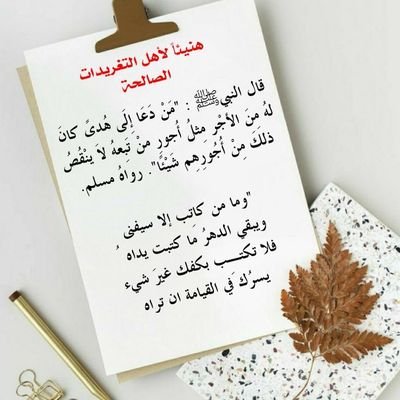 هنيئاً لأهل التغريدات
الصالحة
قال النبي ﷺ : "مَنْ دَعَا إِلَى هُدىً كانَ
لهُ مِنَ الأجْر مثلُ أُجورِ منْ تَبِعهُ لاَ ينْقُصُ
ذلكَ مِنْ أُجُورِهِم شَيْئًا". رواهُ مسلم.
"وما من كاتب إلا سيفنى
ويبقي الدهرُ مَا كتبت يداه ُ
فلا تكتب بكفك غيرَ شيء
يسرُك َفي القيامة ان تراه